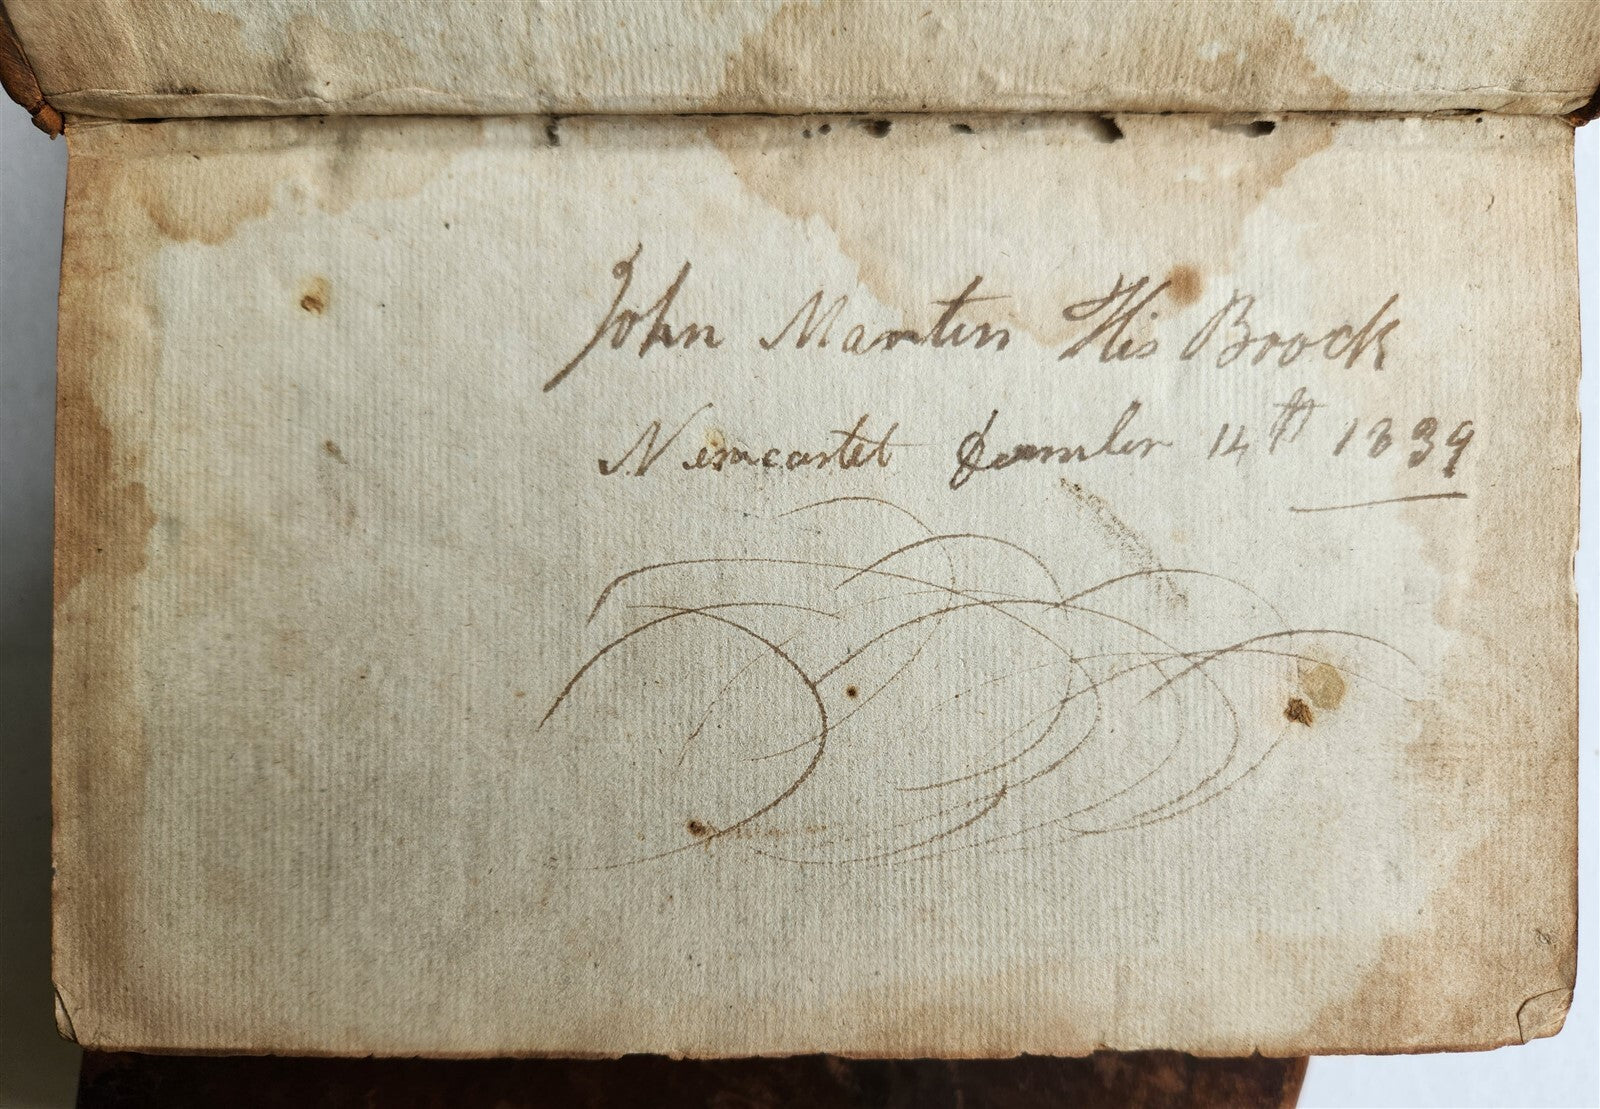 John Manten His Boock
Newcastel December 14th 1839